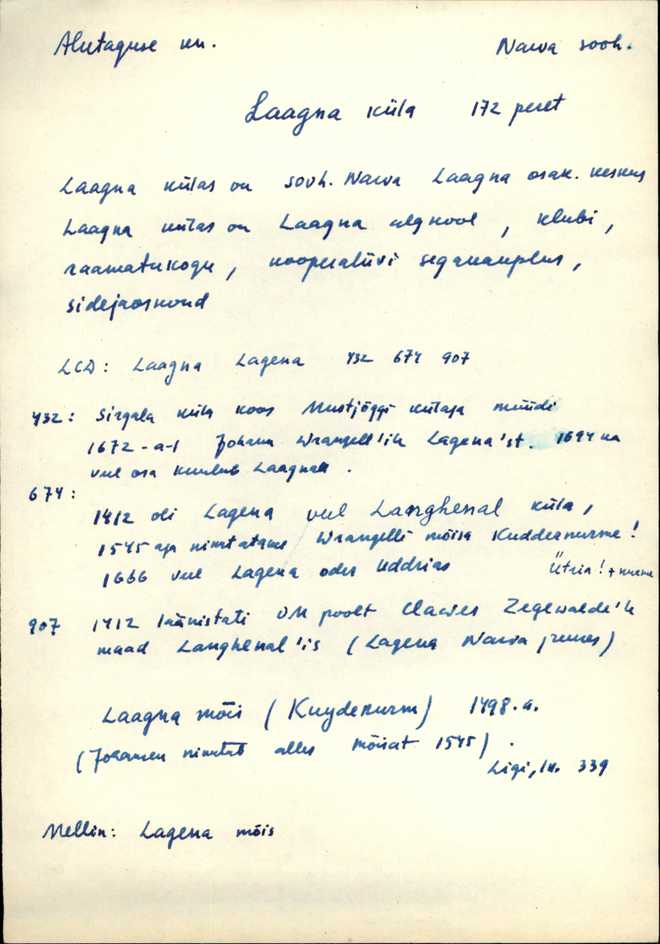 Alutaguse kn. Narva sovh.
Laagna küla 172 peret
Laagna külas on sovh. Narva Laagna osak. keskus
Laagna külas on Laagna algkool, klubi,
raamatukogu, kooperatiivi segakauplus,
sidejaoskond
LCD: Laagna Lagena 432 674 907
432: Sirgala küla koos Mustjõggi külaga müüdi
1672-a-l Johann Wrangell'ile Lagena'st. 1694 na
veel osa kuulub Laagnale.
674:
1412 oli Lagena veel Langhenal küla,
1545 aga nimetatakse Wrangelli mõisa Kuddeanurme!
1666 veel Lagena oder Uddrias Ütria! + nurme
907 1412 läänistati OM poolt Clawes Zegewalde'le
maad Langhenal'is (Lagena Narva juures)
Laagna mõis (Kuydenurm) 1498.a.
(Johansen nimetab alles mõisat 1545).
Ligi, lk. 339
Mellin: Lagena mõis